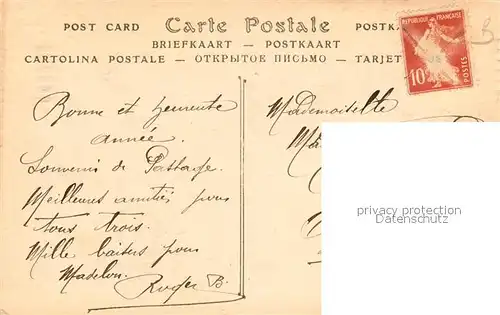 POST CARD Carte Postale POSTKA
BRIEFKAART — POSTKAART
CARTOLINA POSTALE — ОТКРЫТОЕ ПИСЬМО — TARJET
REPUBLIQUE FRANÇAISE
10c
POSTES
B
Bonne et heureuse
année.
Souvenir de Passage.
Meilleures amitiés pour
tous trois.
Mille baisers pour
Madelon.
Roger B.
Mademoiselle
Ma
privacy protection
Datenschutz